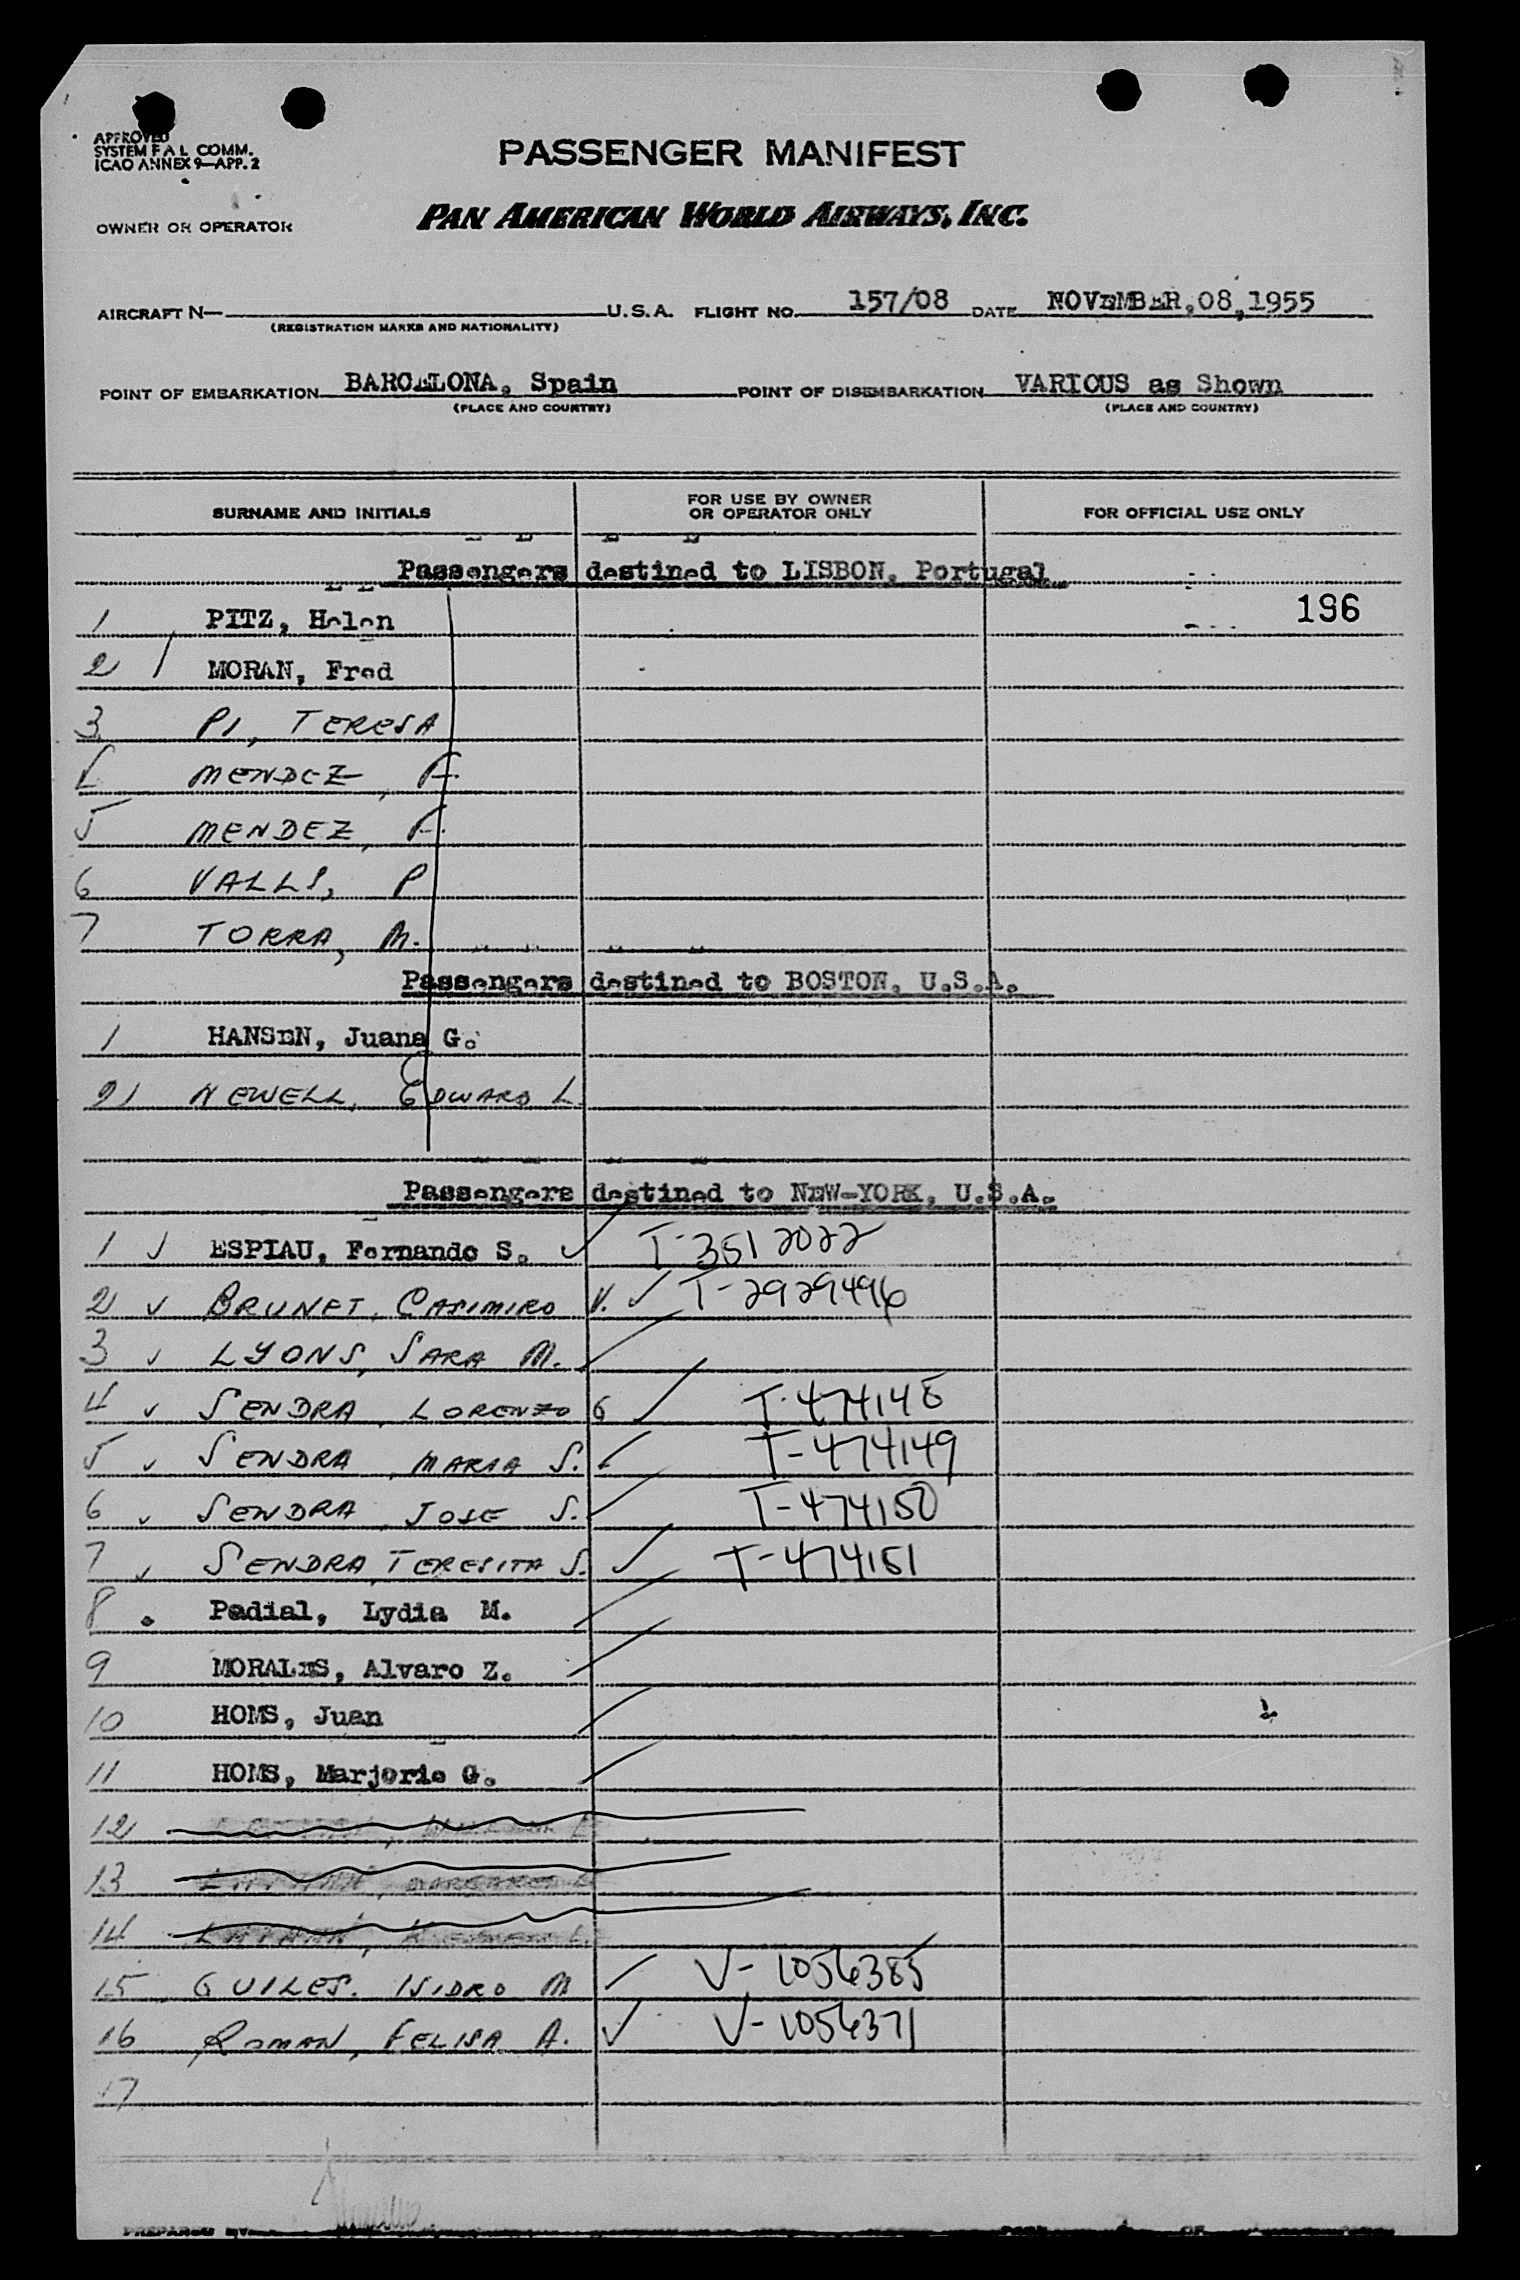 APPROVED
SYSTEM F A L COMM.
ICAO ANNEX 9—APP. 2
PASSENGER MANIFEST
OWNER OR OPERATOR PAN AMERICAN WORLD AIRWAYS, INC.
AIRCRAFT N— U.S.A. FLIGHT NO. 157/08 DATE NOVEMBER,08,1955
(REGISTRATION MARKS AND NATIONALITY)
POINT OF EMBARKATION BARCELONA, Spain POINT OF DISEMBARKATION VARIOUS as Shown
(PLACE AND COUNTRY) (PLACE AND COUNTRY)
SURNAME AND INITIALS FOR USE BY OWNER OR OPERATOR ONLY FOR OFFICIAL USE ONLY
Passengers destined to LISBON, Portugal
1 PITZ, Helen 196
2 MORAN, Fred
3 PI, TERESA
MENDEZ, F.
5 MENDEZ, F.
6 VALLS, P
7 TORRA, M.
Passengers destined to BOSTON, U.S.A.
1 HANSEN, Juana G.
2 NEWELL, EDWARD L.
Passengers destined to NEW-YORK, U.S.A.
1 ✓ ESPIAU, Fernando S. ✓ T-3512022
2 ✓ BRUNET, CASIMIRO V. ✓ T-2929496
3 ✓ LYONS, SARA M.
4 ✓ SENDRA, LORENZO G ✓ T-474148
5 ✓ SENDRA, MARIA S. ✓ T-474149
6 ✓ SENDRA, JOSE S. ✓ T-474150
7 ✓ SENDRA, TERESITA S. ✓ T-474151
8 Padial, Lydia M.
9 MORALES, Alvaro Z.
10 HOMS, Juan
11 HOMS, Marjorie G.
12
13
14
15 GUILES. ISIDRO M ✓ V-1056385
16 ROMAN, FELISA A. ✓ V-1056371
17
PREPARED BY